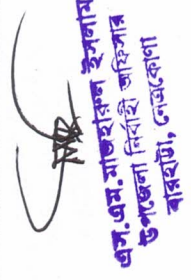 এস.এম.মাজহারুল ইসলাম
উপজেলা নির্বাহী অফিসার
বারহাট্টা, নেত্রকোণা